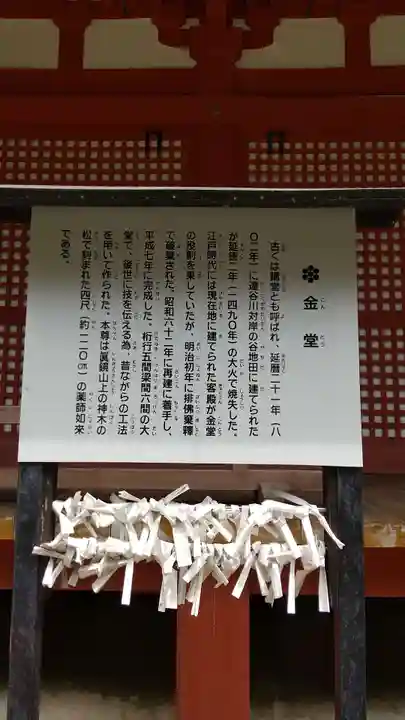 金堂
古くは講堂とも呼ばれ、延暦二十一年（八
〇二年）に達谷川対岸の谷地田に建てられた
が延徳二年（一四九〇年）の大火で焼失した。
江戸時代には現在地に建てられた客殿が金堂
の役割を果していたが、明治初年に排佛棄釋
で破棄された。昭和六十二年に再建に着手し、
平成七年に完成した。桁行五間梁間六間の大
堂で、後世に技を伝える為、昔ながらの工法
を用いて作られた。本尊は眞鏡山上の神木の
松で刻まれた四尺（約一二〇㌢）の薬師如来
である。